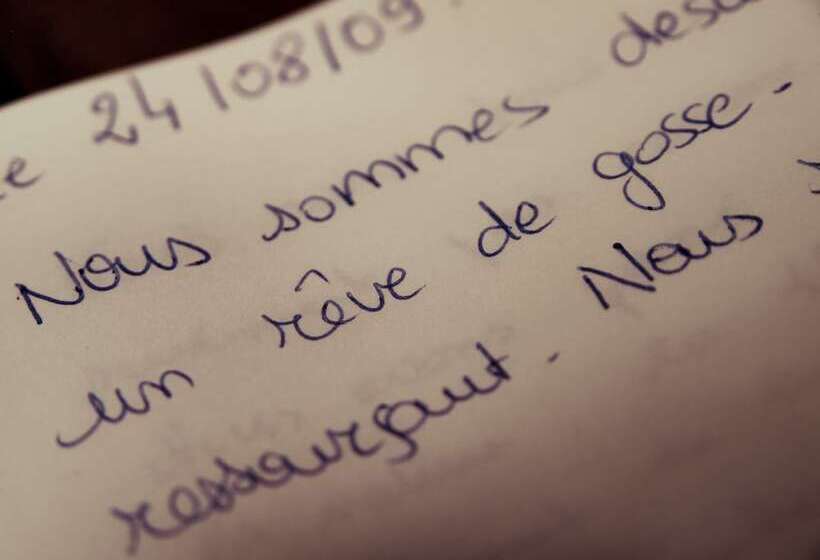 24/08/09.
Nous sommes
un rêve de gosse.
ressourçant. Nous